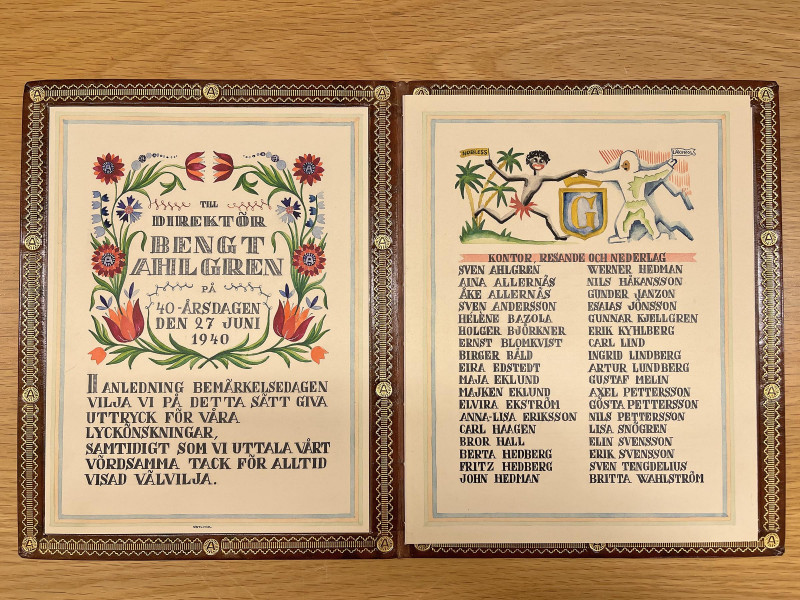 TILL
DIREKTÖR
BENGT
AHLGREN
PÅ
40-ÅRSDAGEN
DEN 27 JUNI
1940
I ANLEDNING BEMÄRKELSEDAGEN
VILJA VI PÅ DETTA SÄTT GIVA
UTTRYCK FÖR VÅRA
LYCKÖNSKNINGAR,
SAMTIDIGT SOM VI UTTALA VÅRT
VÖRDSAMMA TACK FÖR ALLTID
VISAD VÄLVILJA.
NOBLESS
LÄKEROL
G
KONTOR, RESANDE OCH NEDERLAG
SVEN AHLGREN
AINA ALLERNÄS
ÅKE ALLERNÄS
SVEN ANDERSSON
HELÉNE BAZOLA
HOLGER BJÖRKNER
ERNST BLOMKVIST
BIRGER BÅLD
EIRA EDSTEDT
MAJA EKLUND
MAJKEN EKLUND
ELVIRA EKSTRÖM
ANNA-LISA ERIKSSON
CARL HAAGEN
BROR HALL
BERTA HEDBERG
FRITZ HEDBERG
JOHN HEDMAN
WERNER HEDMAN
NILS HÅKANSSON
GUNDER JANZON
ESAIAS JÖNSSON
GUNNAR KJELLGREN
ERIK KYHLBERG
CARL LIND
INGRID LINDBERG
ARTUR LUNDBERG
GUSTAF MELIN
AXEL PETTERSSON
GÖSTA PETTERSSON
NILS PETTERSSON
LISA SNÖGREN
ELIN SVENSSON
ERIK SVENSSON
SVEN TENGDELIUS
BRITTA WAHLSTRÖM